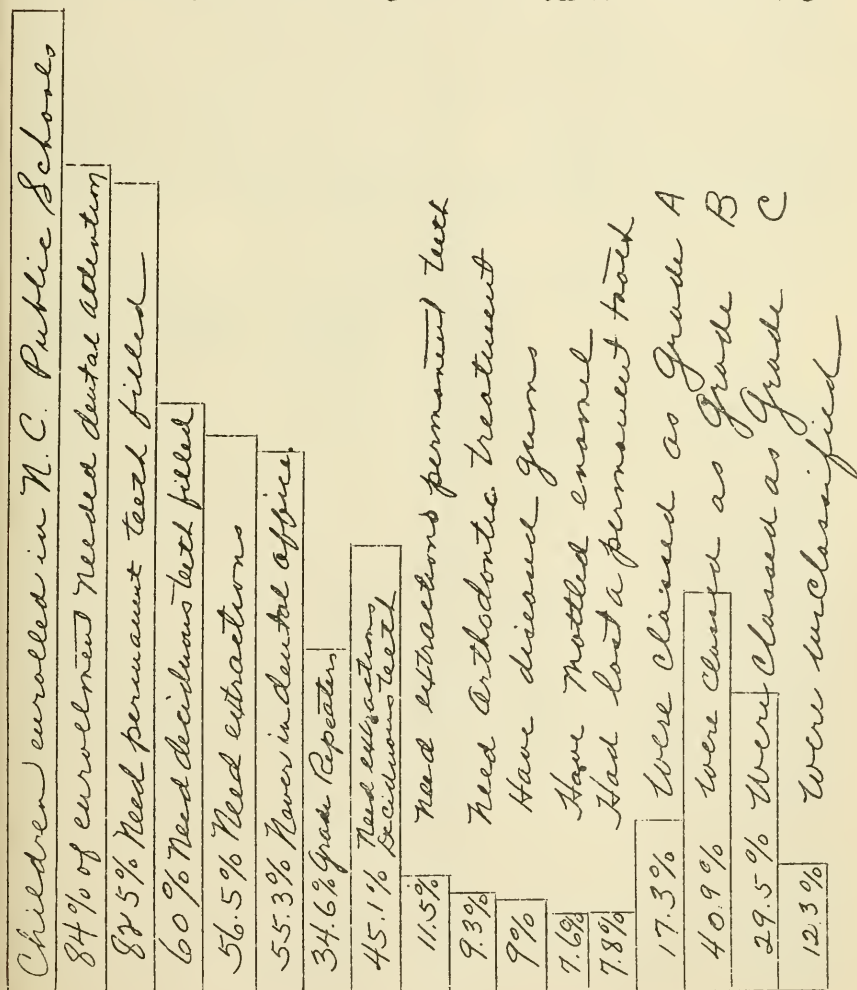 Children enrolled in N.C. Public Schools
84% of enrollment needed dental attention
82.5% Need permanent teeth filled
60% Need deciduous teeth filled
56.5% Need extractions
55.3% Never in dental office.
34.6% Grade Repeaters
45.1% Need extractions
Deciduous teeth
11.5% Need extractions permanent teeth
9.3% Need Orthodontic treatment
9% Have diseased gums
7.6% Have Mottled enamel
7.8% Had lost a permanent tooth
17.3% Were classed as Grade A
40.9% Were classed as Grade B
29.5% Were Classed as Grade C
12.3% Were unclassified